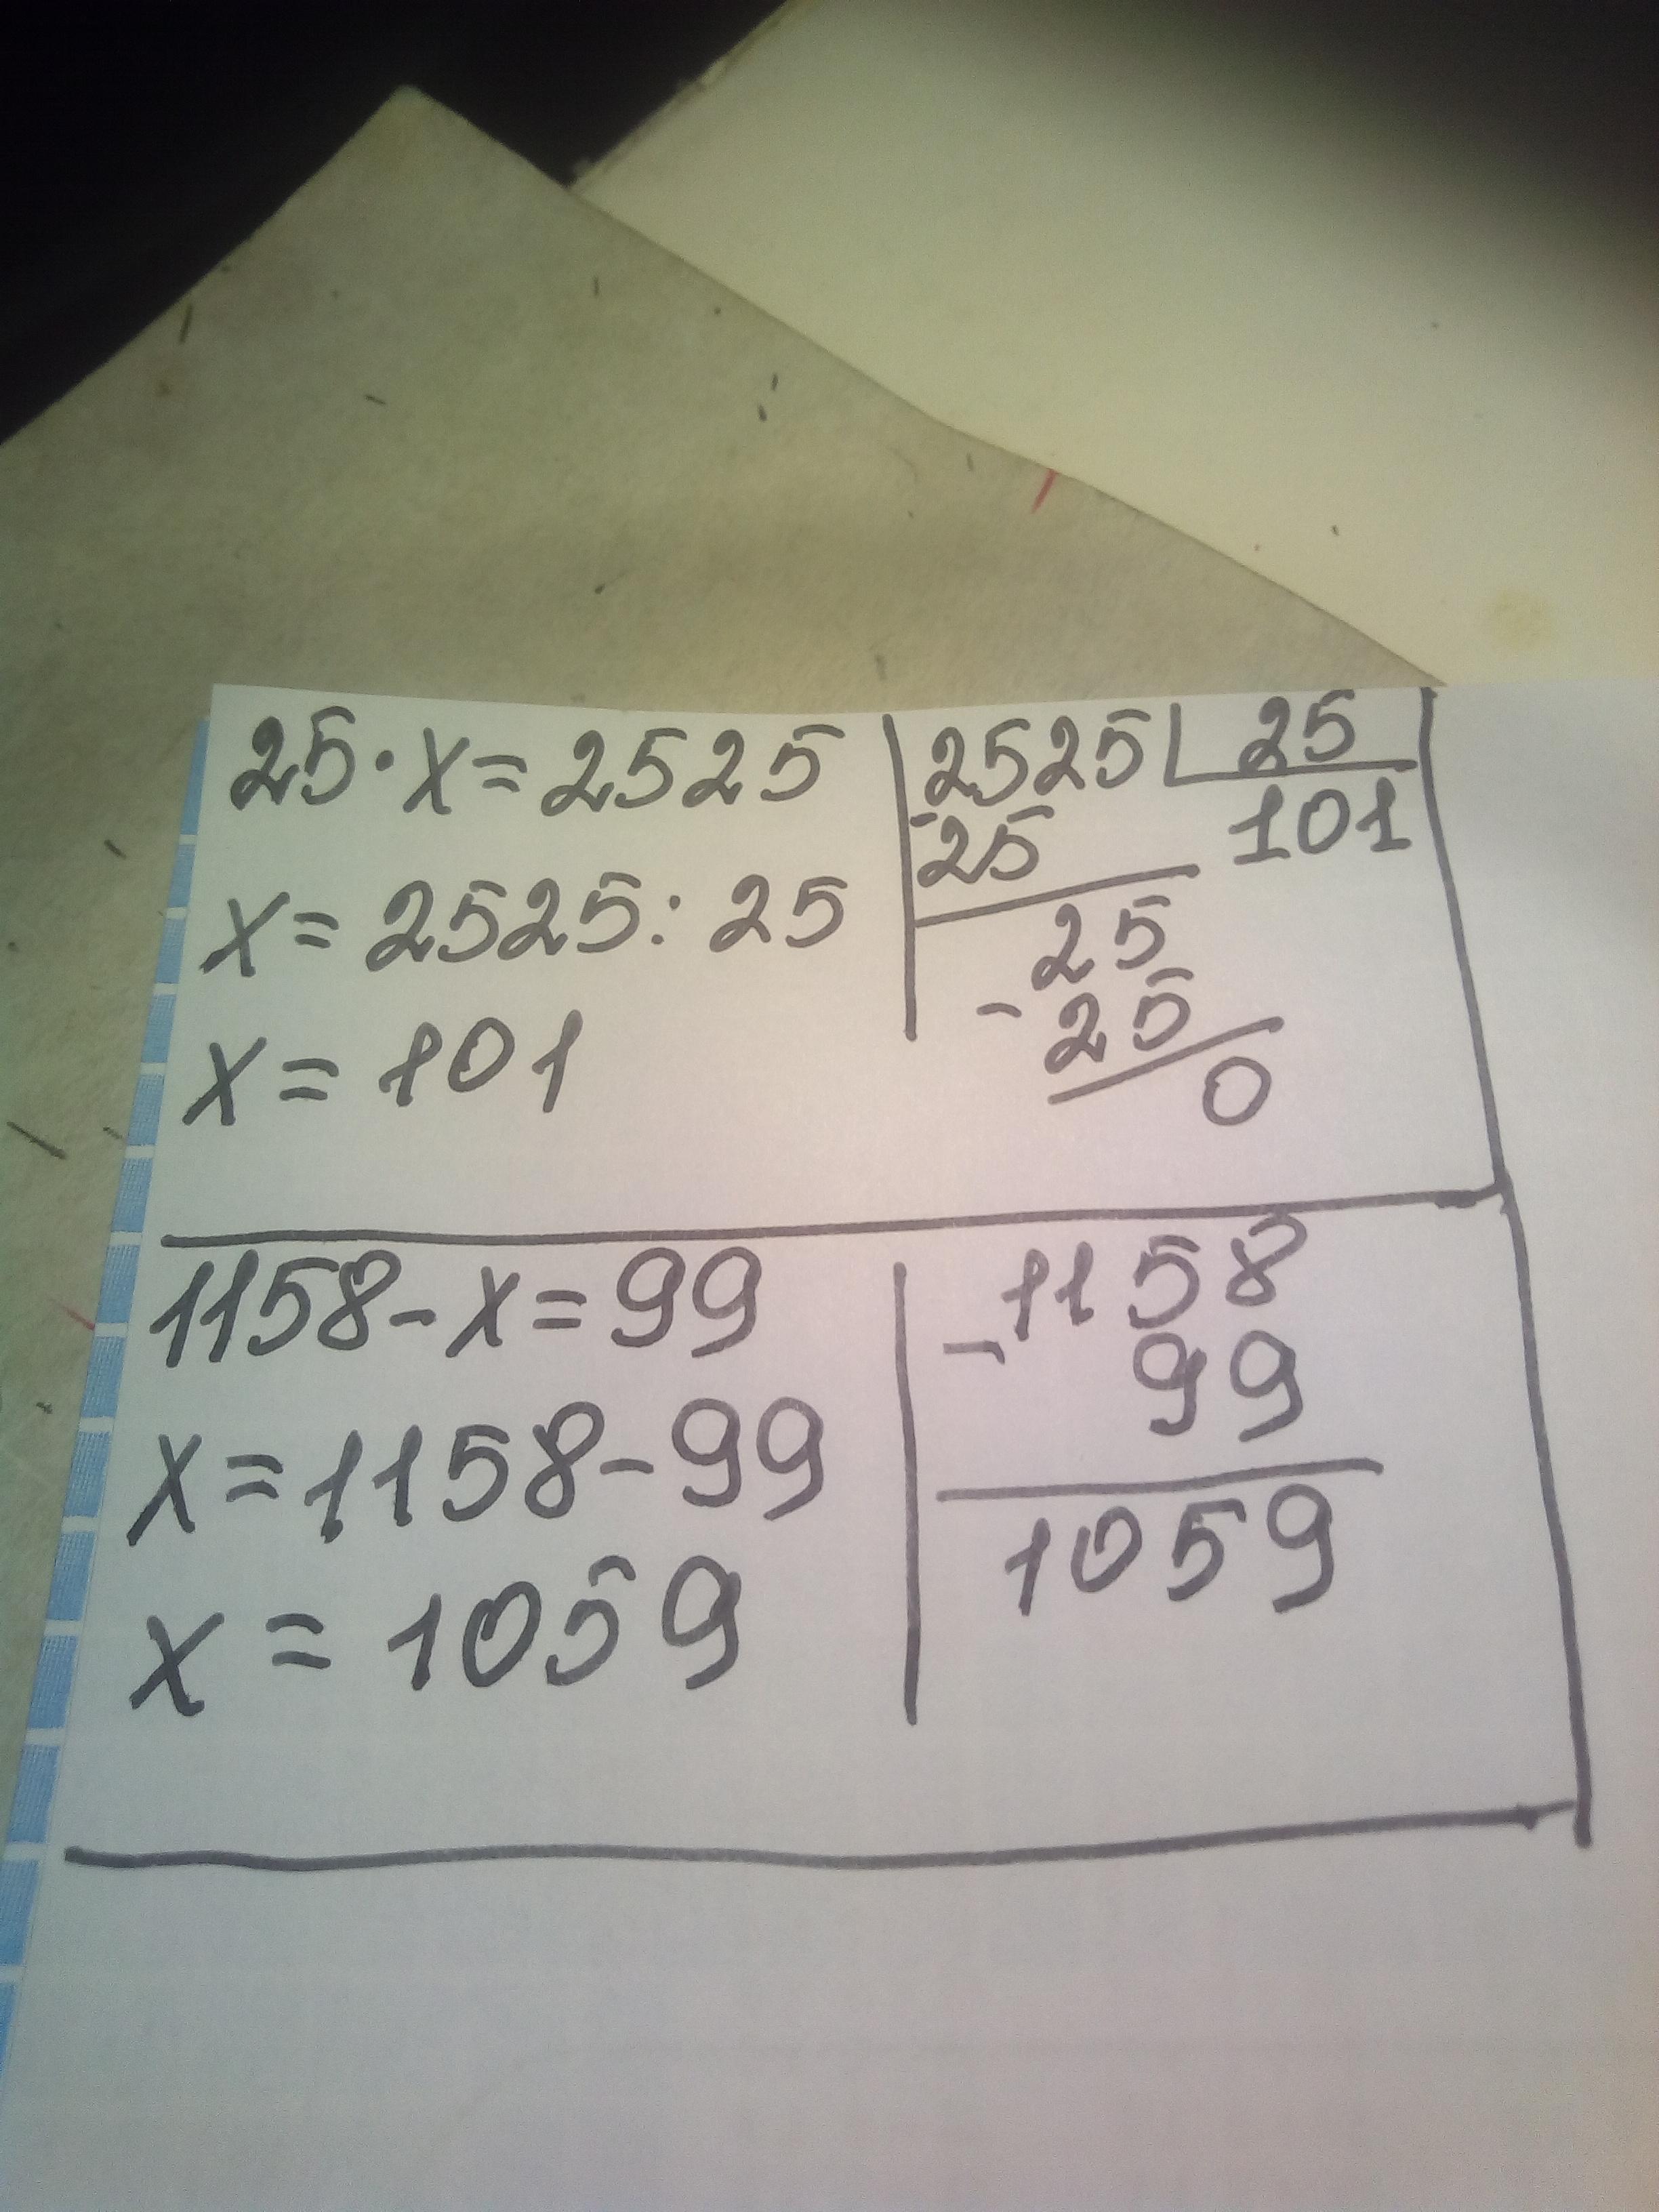 25·x=2525
x=2525:25
x=101
2525 25
-25 101
25
-25
0
1158-x=99
x=1158-99
x=1059
-1158
99
1059